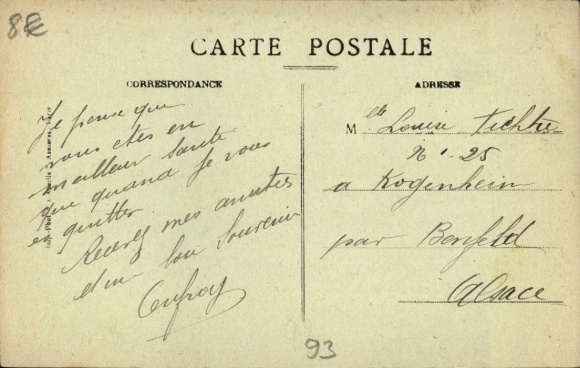 8€
CARTE POSTALE
CORRESPONDANCE
ADRESSE
Je pense que
vous etes en
meilleur Santé
que quand je vous
ai quitter.
Recevez mes amitiés
d'un bon Souvenir
Mlle Louise
N° 25
a Kogenheim
par Benfeld
Alsace
93